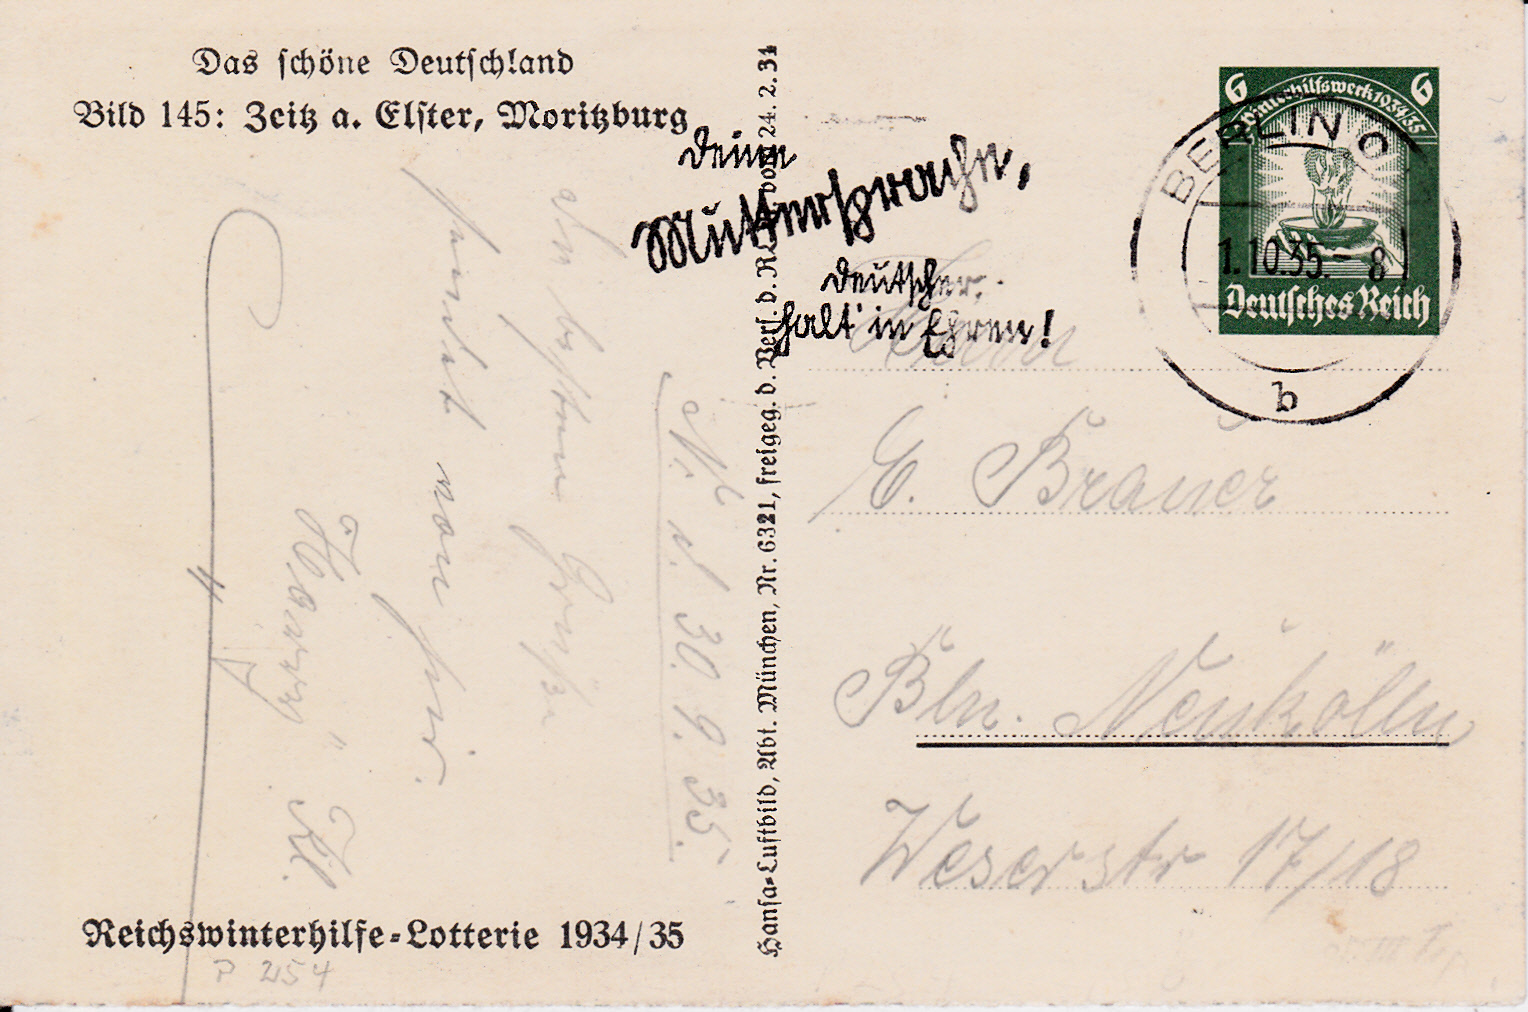 Das schöne Deutschland
Bild 145: Zeitz a. Elster, Moritzburg
Deine
Muttersprache,
Deutscher,
halt' in Ehren!
6 6
Winterhilfswerk 1934/35
Deutsches Reich
BERLIN O
1.10.35.- 8
b
Hansa-Luftbild, Abt. München, Nr. 6321, freigeg. d. Verf. d. RLM vom 24. 2. 34
E. Brauer
Bln. Neukölln
Weserstr 17/18
N. d. 30. 9. 35.
Die besten Grüße
sendet von hier
"Harry" Kl.
Reichswinterhilfe-Lotterie 1934/35
P 254